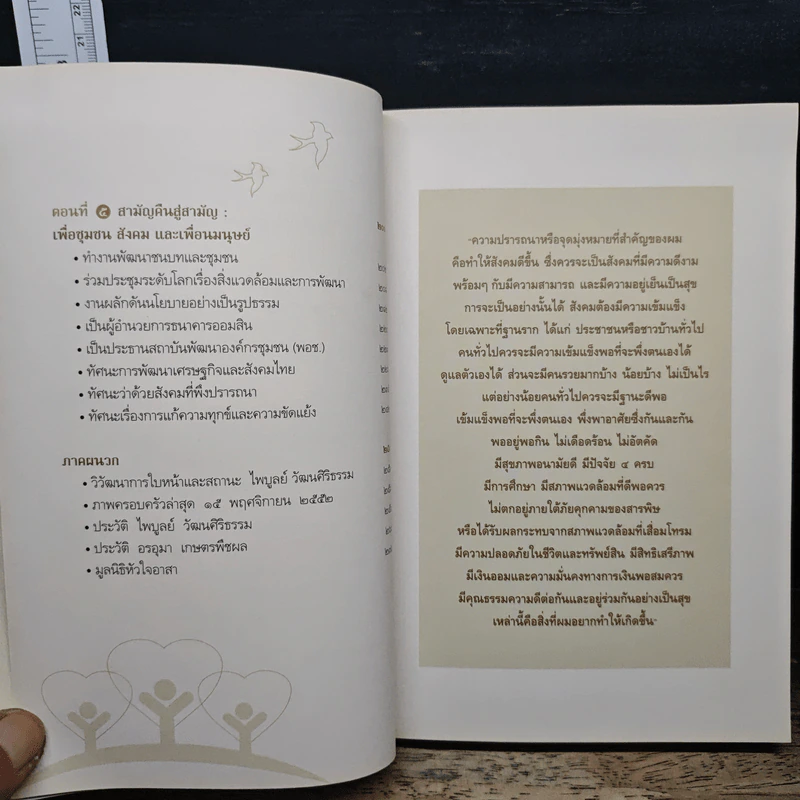 22
21
ตอนที่ ๕ สามัญคืนสู่สามัญ :
เพื่อชุมชน สังคม และเพื่อนมนุษย์
• ทำงานพัฒนาชนบทและชุมชน
• ร่วมประชุมระดับโลกเรื่องสิ่งแวดล้อมและการพัฒนา
• งานผลักดันนโยบายอย่างเป็นรูปธรรม
• เป็นผู้อำนวยการธนาคารออมสิน
• เป็นประธานสถาบันพัฒนาองค์กรชุมชน (พอช.)
• ทัศนะการพัฒนาเศรษฐกิจและสังคมไทย
• ทัศนะว่าด้วยสังคมที่พึงปรารถนา
• ทัศนะเรื่องการแก้ความทุกข์และความขัดแย้ง
ภาคผนวก
• วิวัฒนาการใบหน้าและสถานะ ไพบูลย์ วัฒนศิริธรรม
• ภาพครอบครัวล่าสุด ๑๕ พฤศจิกายน ๒๕๕๒
• ประวัติ ไพบูลย์ วัฒนศิริธรรม
• ประวัติ อรอุมา เกษตรพืชผล
• มูลนิธิหัวใจอาสา
"ความปรารถนาหรือจุดมุ่งหมายที่สำคัญของผม
คือทำให้สังคมดีขึ้น ซึ่งควรจะเป็นสังคมที่มีความดีงาม
พร้อมๆ กับมีความสามารถ และมีความอยู่เย็นเป็นสุข
การจะเป็นอย่างนั้นได้ สังคมต้องมีความเข้มแข็ง
โดยเฉพาะที่ฐานราก ได้แก่ ประชาชนหรือชาวบ้านทั่วไป
คนทั่วไปควรจะมีความเข้มแข็งพอที่จะพึ่งตนเองได้
ดูแลตัวเองได้ ส่วนจะมีคนรวยมากบ้าง น้อยบ้าง ไม่เป็นไร
แต่อย่างน้อยคนทั่วไปควรจะมีฐานะดีพอ
เข้มแข็งพอที่จะพึ่งตนเอง พึ่งพาอาศัยซึ่งกันและกัน
พออยู่พอกิน ไม่เดือดร้อน ไม่อัตคัด
มีสุขภาพอนามัยดี มีปัจจัย ๔ ครบ
มีการศึกษา มีสภาพแวดล้อมที่ดีพอควร
ไม่ตกอยู่ภายใต้ภัยคุกคามของสารพิษ
หรือได้รับผลกระทบจากสภาพแวดล้อมที่เสื่อมโทรม
มีความปลอดภัยในชีวิตและทรัพย์สิน มีสิทธิเสรีภาพ
มีเงินออมและความมั่นคงทางการเงินพอสมควร
มีคุณธรรมความดีต่อกันและอยู่ร่วมกันอย่างเป็นสุข
เหล่านี้คือสิ่งที่ผมอยากทำให้เกิดขึ้น"